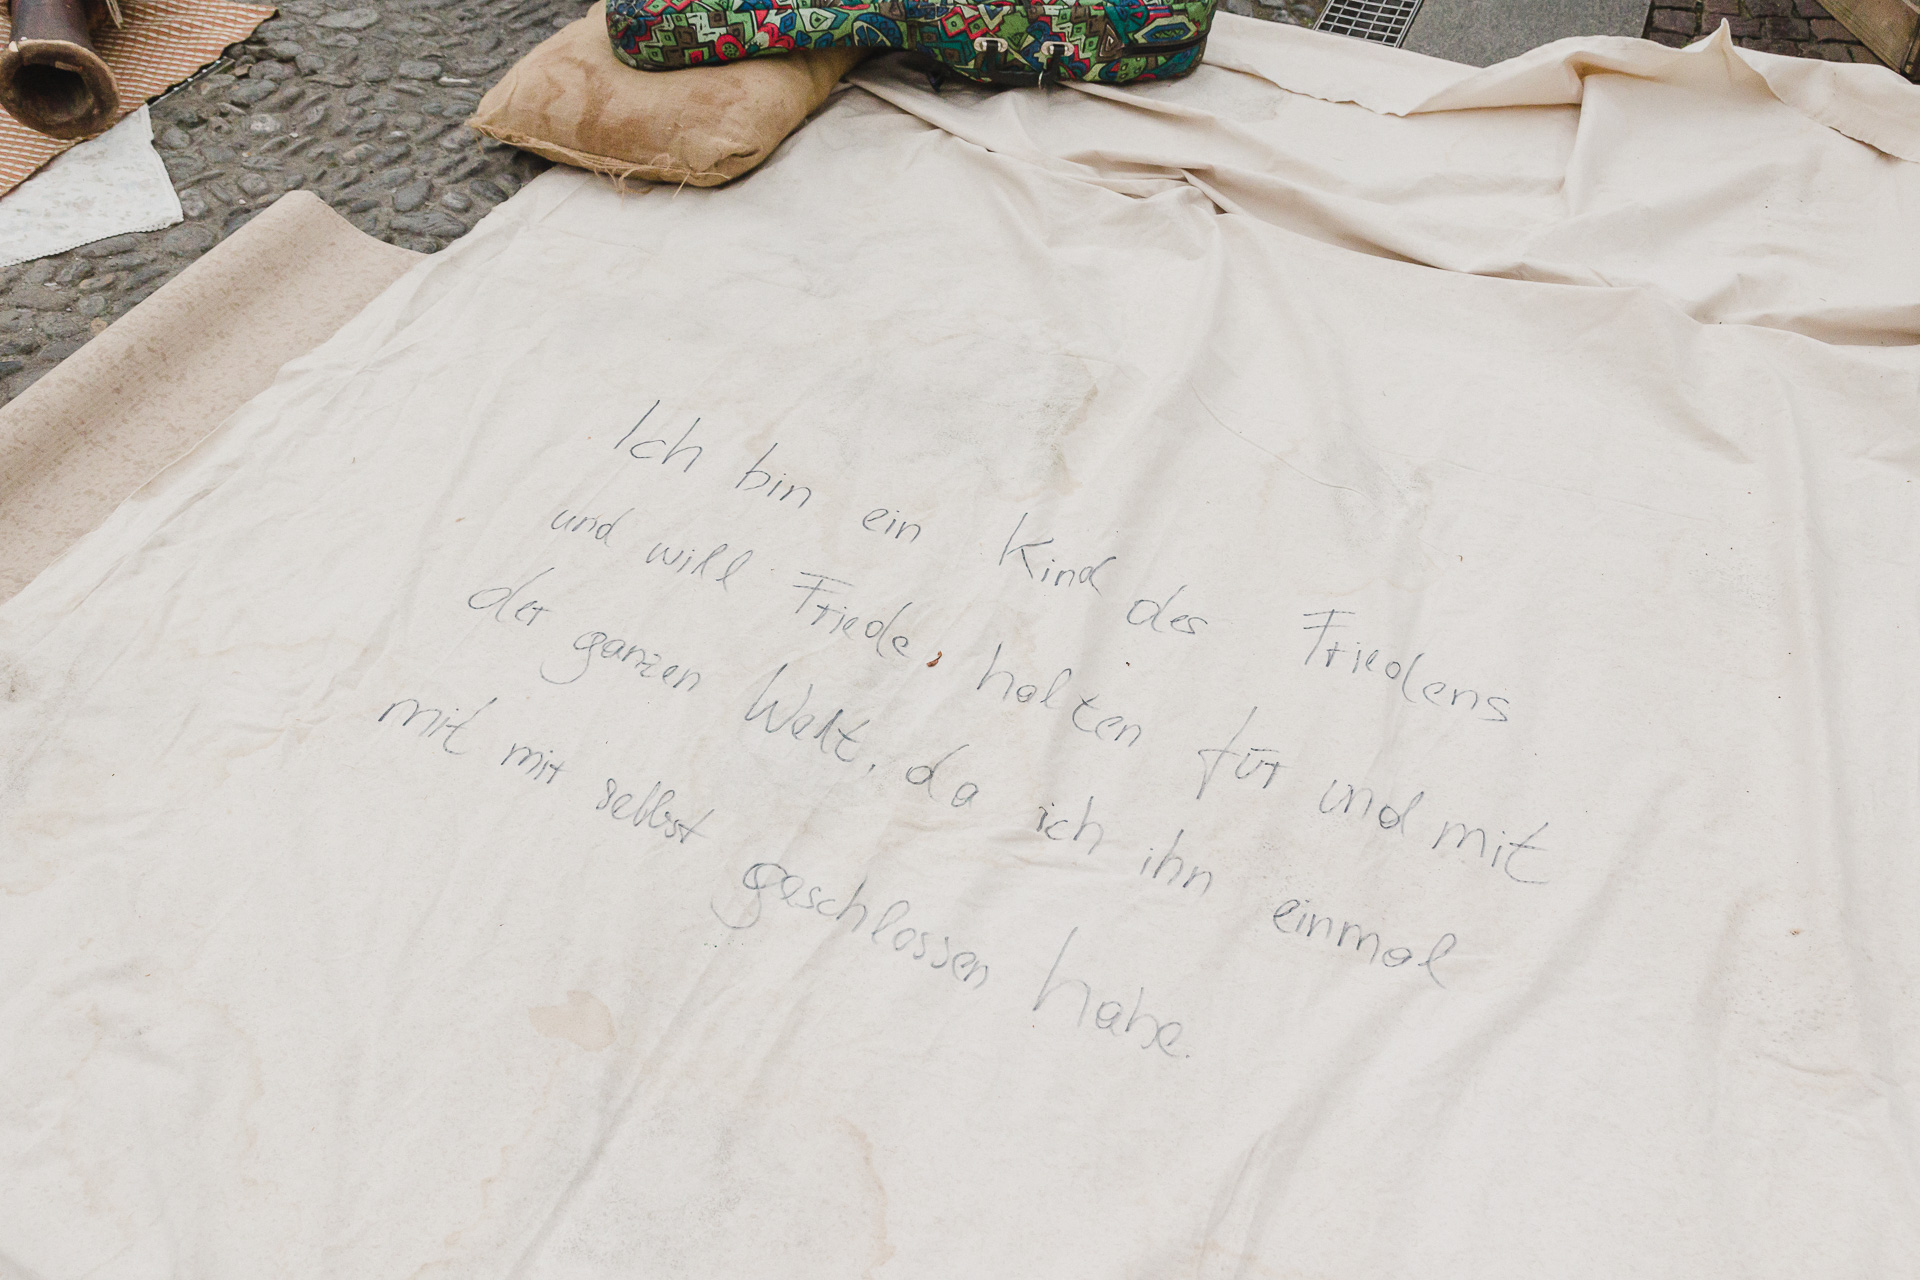 Ich bin ein Kind des Friedens
und will Friede, halten für und mit
der ganzen Welt, da ich ihn einmal
mit mir selbst geschlossen habe.